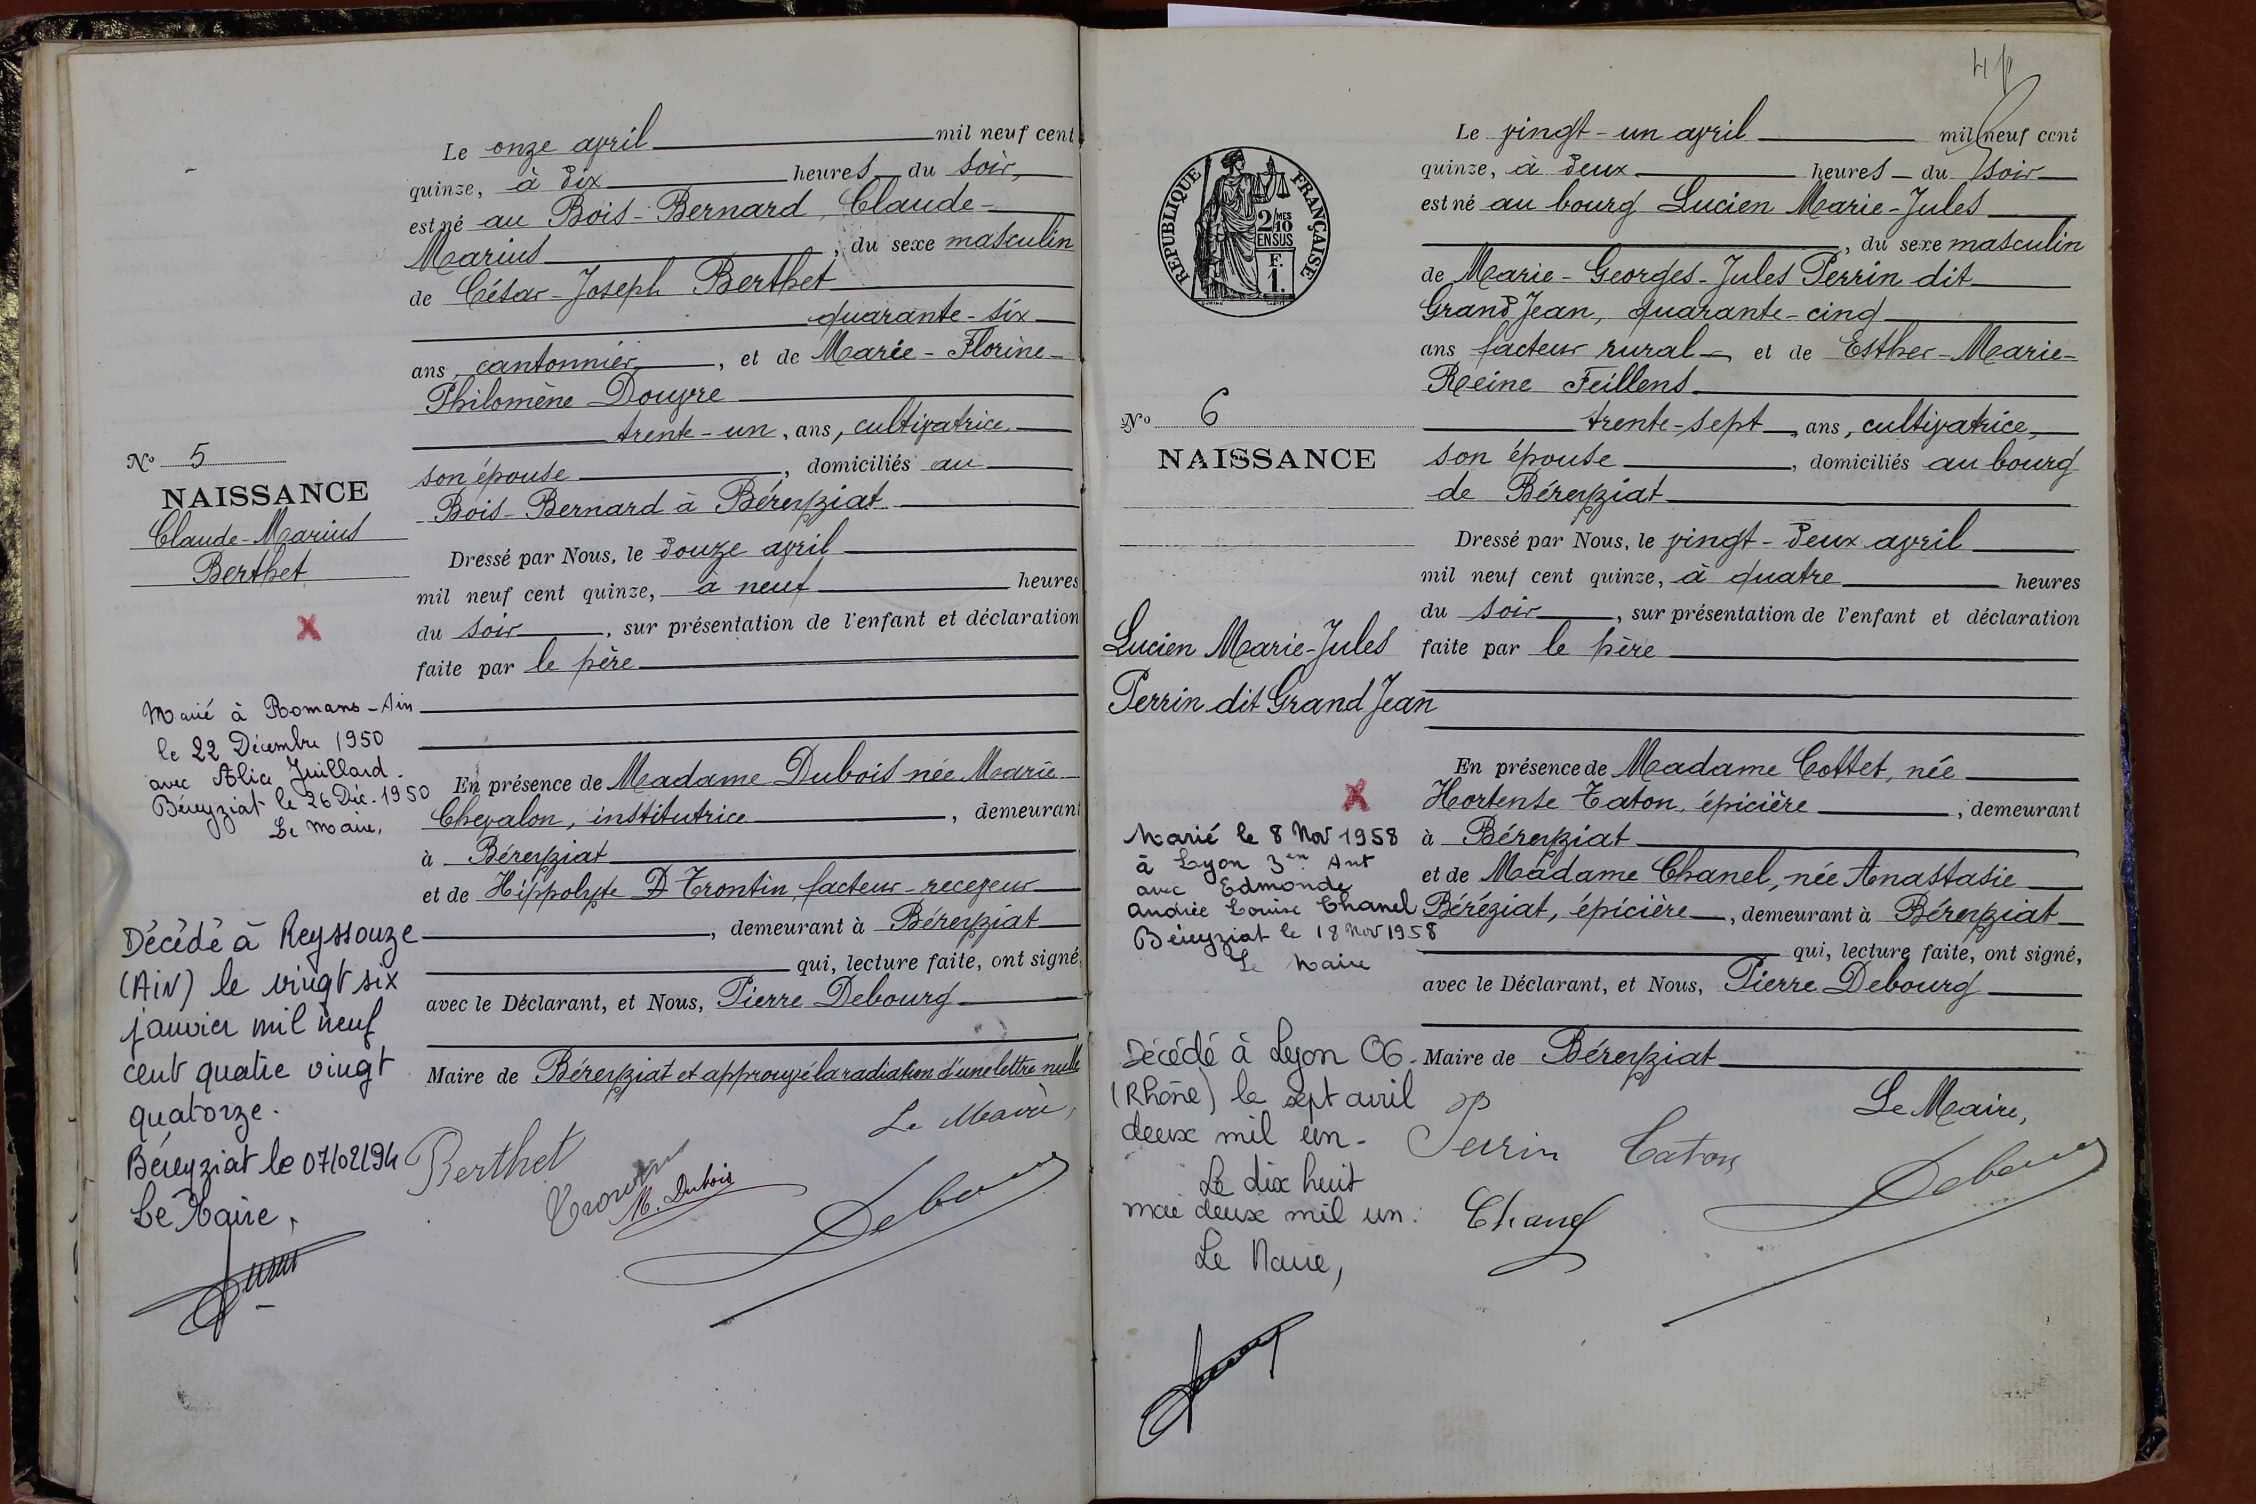 Le onze avril mil neuf cent
quinze, à dix heures du soir,
est né au Bois-Bernard, Claude-
Marius, du sexe masculin
de César-Joseph Berthet
quarante-six
ans, cantonnier, et de Marie-Florine-
Philomène Douvre
trente-un, ans, cultivatrice
son épouse, domiciliés au
Bois-Bernard à Béreyziat
N° 5
NAISSANCE
Claude-Marius
Berthet
Dressé par Nous, le douze avril
mil neuf cent quinze, à neuf heures
du soir, sur présentation de l'enfant et déclaration
faite par le père
Marié à Romans-Ain
le 22 Décembre 1950
avec Alice Juillard.
Béreyziat le 26 Déc. 1950
Le Maire,
En présence de Madame Dubois née Marie
Chevalon, institutrice, demeurant
à Béreyziat
et de Hippolyte D Trontin, facteur-receveur
, demeurant à Béreyziat
qui, lecture faite, ont signé,
avec le Déclarant, et Nous, Pierre Debourg
Maire de Béreyziat et approuvé la radiation d'une lettre nulle
Décédé à Reyssouze
(AiN) le vingt six
janvier mil neuf
cent quatre vingt
quatorze.
Béreyziat le 07/02/94
Le Maire,
Le Maire,
Berthet
M. Dubois
Debourg
4
REPUBLIQUE FRANÇAISE
2/MES
10
EN SUS
F.
1.
Le vingt-un avril mil neuf cent
quinze, à deux heures du soir
est né au bourg Lucien Marie-Jules
, du sexe masculin
de Marie-Georges-Jules Perrin dit
Grand Jean, quarante-cinq
ans facteur rural, et de Esther-Marie-
Reine Feillens
trente-sept, ans, cultivatrice,
son épouse, domiciliés au bourg
de Béreyziat
N° 6
NAISSANCE
Lucien Marie-Jules
Perrin dit Grand Jean
Dressé par Nous, le vingt-deux avril
mil neuf cent quinze, à quatre heures
du soir, sur présentation de l'enfant et déclaration
faite par le père
En présence de Madame Cottet, née
Hortense Caton, épicière, demeurant
à Béreyziat
et de Madame Chanel, née Anastasie
Béréziat, épicière, demeurant à Béreyziat
qui, lecture faite, ont signé,
avec le Déclarant, et Nous, Pierre Debourg
Maire de Béreyziat
Marié le 8 Nov 1958
à Lyon 3em Art
avec Edmonde
Andrée Louise Chanel
Béreyziat le 18 Nov 1958
Le Maire
Décédé à Lyon 06.
(Rhône) le sept avril
deux mil un.
Le dix huit
mai deux mil un.
Le Maire,
Le Maire,
Perrin
Caton
Chanel
Debourg